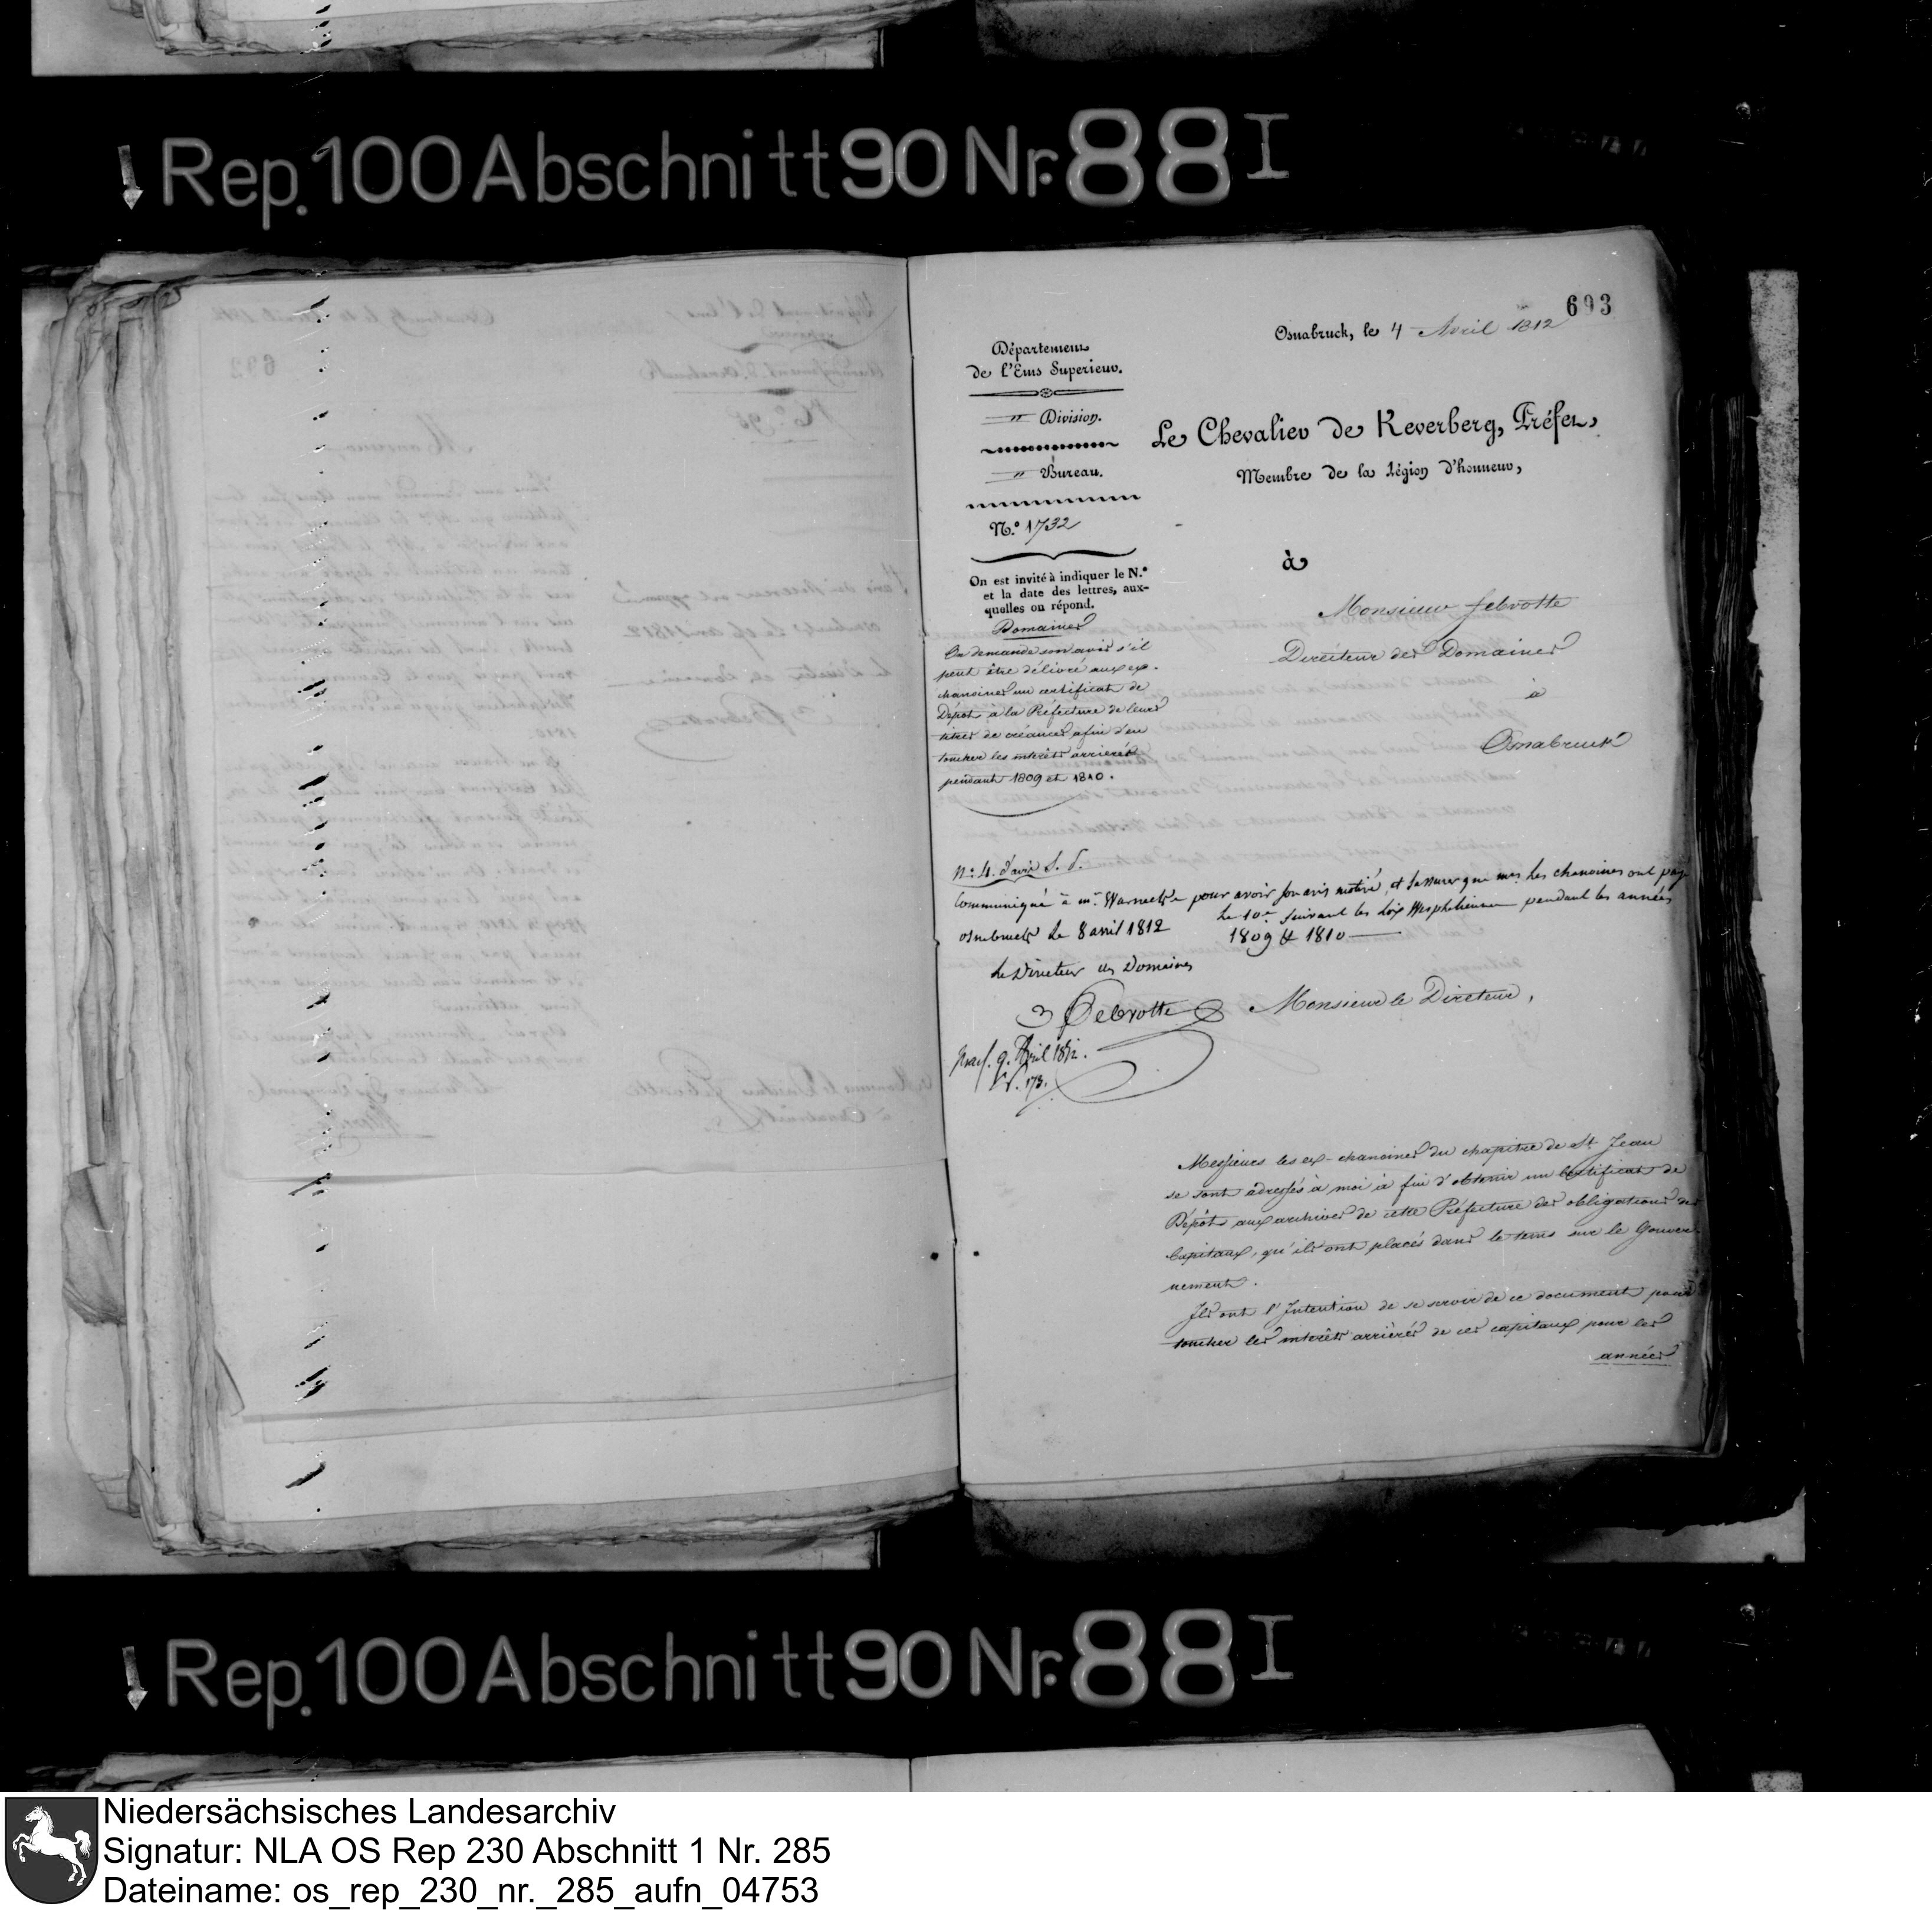 Rep. 100 Abschnitt 90 Nr. 88 I
693
Osnabruck, le 4 Avril 1812
Département
de l'Ems Superieur.
" Division.
" Bureau.
N.º 1732
On est invité à indiquer le N.º
et la date des lettres, aux-
quelles on répond.
Domaines
On demande son avis s'il
peut être délivré aux ex-
chanoines un certificat de
Dépôt à la Préfecture de leurs
titres de créances afin d'en
toucher les intérêts arrierés
pendant 1809 et 1810.
Le Chevalier de Keverberg, Préfet,
Membre de la Légion d'honneur,
à
Monsieur Febvotte
Directeur des Domaines
à
Osnabruck
Nº 4. d'avis S. d.
Communiqué à mr. Warnecke pour avoir son avis motivé, et s'assurer que mrs. les chanoines ont payé
le 10e suivant les loix Westphaliennes pendant les années
1809 & 1810
Osnabruck le 8 avril 1812
Le Directeur des Domaines
Febvotte
9. April 1812.
Nr. 173.
Monsieur le Directeur,
Messieurs les ex-chanoines du chapitre de St Jean
se sont adressés à moi à fin d'obtenir un Certificat de
Dépôt aux archives de cette Préfecture des obligations des
Capitaux, qu'ils ont placés dans le tems sur le Gouver-
nement.
Ils ont l'Intention de se servir de ce document pour
toucher les intérêts arriérés de ces capitaux pour les
années
Rep. 100 Abschnitt 90 Nr. 88 I
Niedersächsisches Landesarchiv
Signatur: NLA OS Rep 230 Abschnitt 1 Nr. 285
Dateiname: os_rep_230_nr._285_aufn_04753